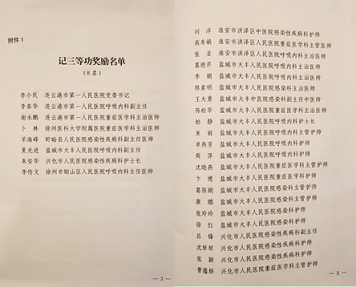 附件1
记三等功奖励名单
(8名)
李小民 连云港市第一人民医院党委书记
李春华 连云港市第一人民医院呼吸内科副主任
谢永鹏 连云港市第一人民医院重症医学科主治医师
卜林 徐州医科大学附属医院重症医学科主治医师
市人民医院感染性疾病科副主任医师
夏光进 盐城市大丰人民医院呼吸内科副主任
朱安华 兴化市人民医院感染性疾病科护士长
李传文 徐州市铜山区人民医院呼吸内科主任医师
— 3 —
刘洋 淮安市洪泽区中医院感染性疾病科护师
淮安市洪泽区人民医院重症医学科主管护师
张 淮安市洪泽区人民医院重症医学科护师
盐城市大丰人民医院呼吸内科主治医师
李娟 盐城市大丰人民医院呼吸内科主治医师
盐城市大丰人民医院感染科主治医师
王大勇 盐城市大丰中医院感染性疾病科副主任
盐城市大丰人民医院重症医学科主管护师
柏静 盐城市大丰人民医院感染科护士长
朱丽 盐城市大丰人民医院呼吸内科护师
盐城市大丰人民医院呼吸内科护师
周萍 盐城市大丰人民医院呼吸内科护师
沈晓燕 盐城市大丰人民医院重症医学科护师
卞博 盐城市大丰人民医院重症医学科护师
盐城市大丰人民医院感染科主管护师
康 盐城市大丰人民医院感染科主管护师
张玲玲 盐城市大丰人民医院感染科护师
徐红 盐城市大丰人民医院感染科护师
吕锋 兴化市人民医院感染性疾病科副主任
沈 兴化市人民医院感染性疾病科护师
张颖 兴化市人民医院感染性疾病科护师
曹蕴 兴化市人民医院重症医学科主管护师
— 5 —